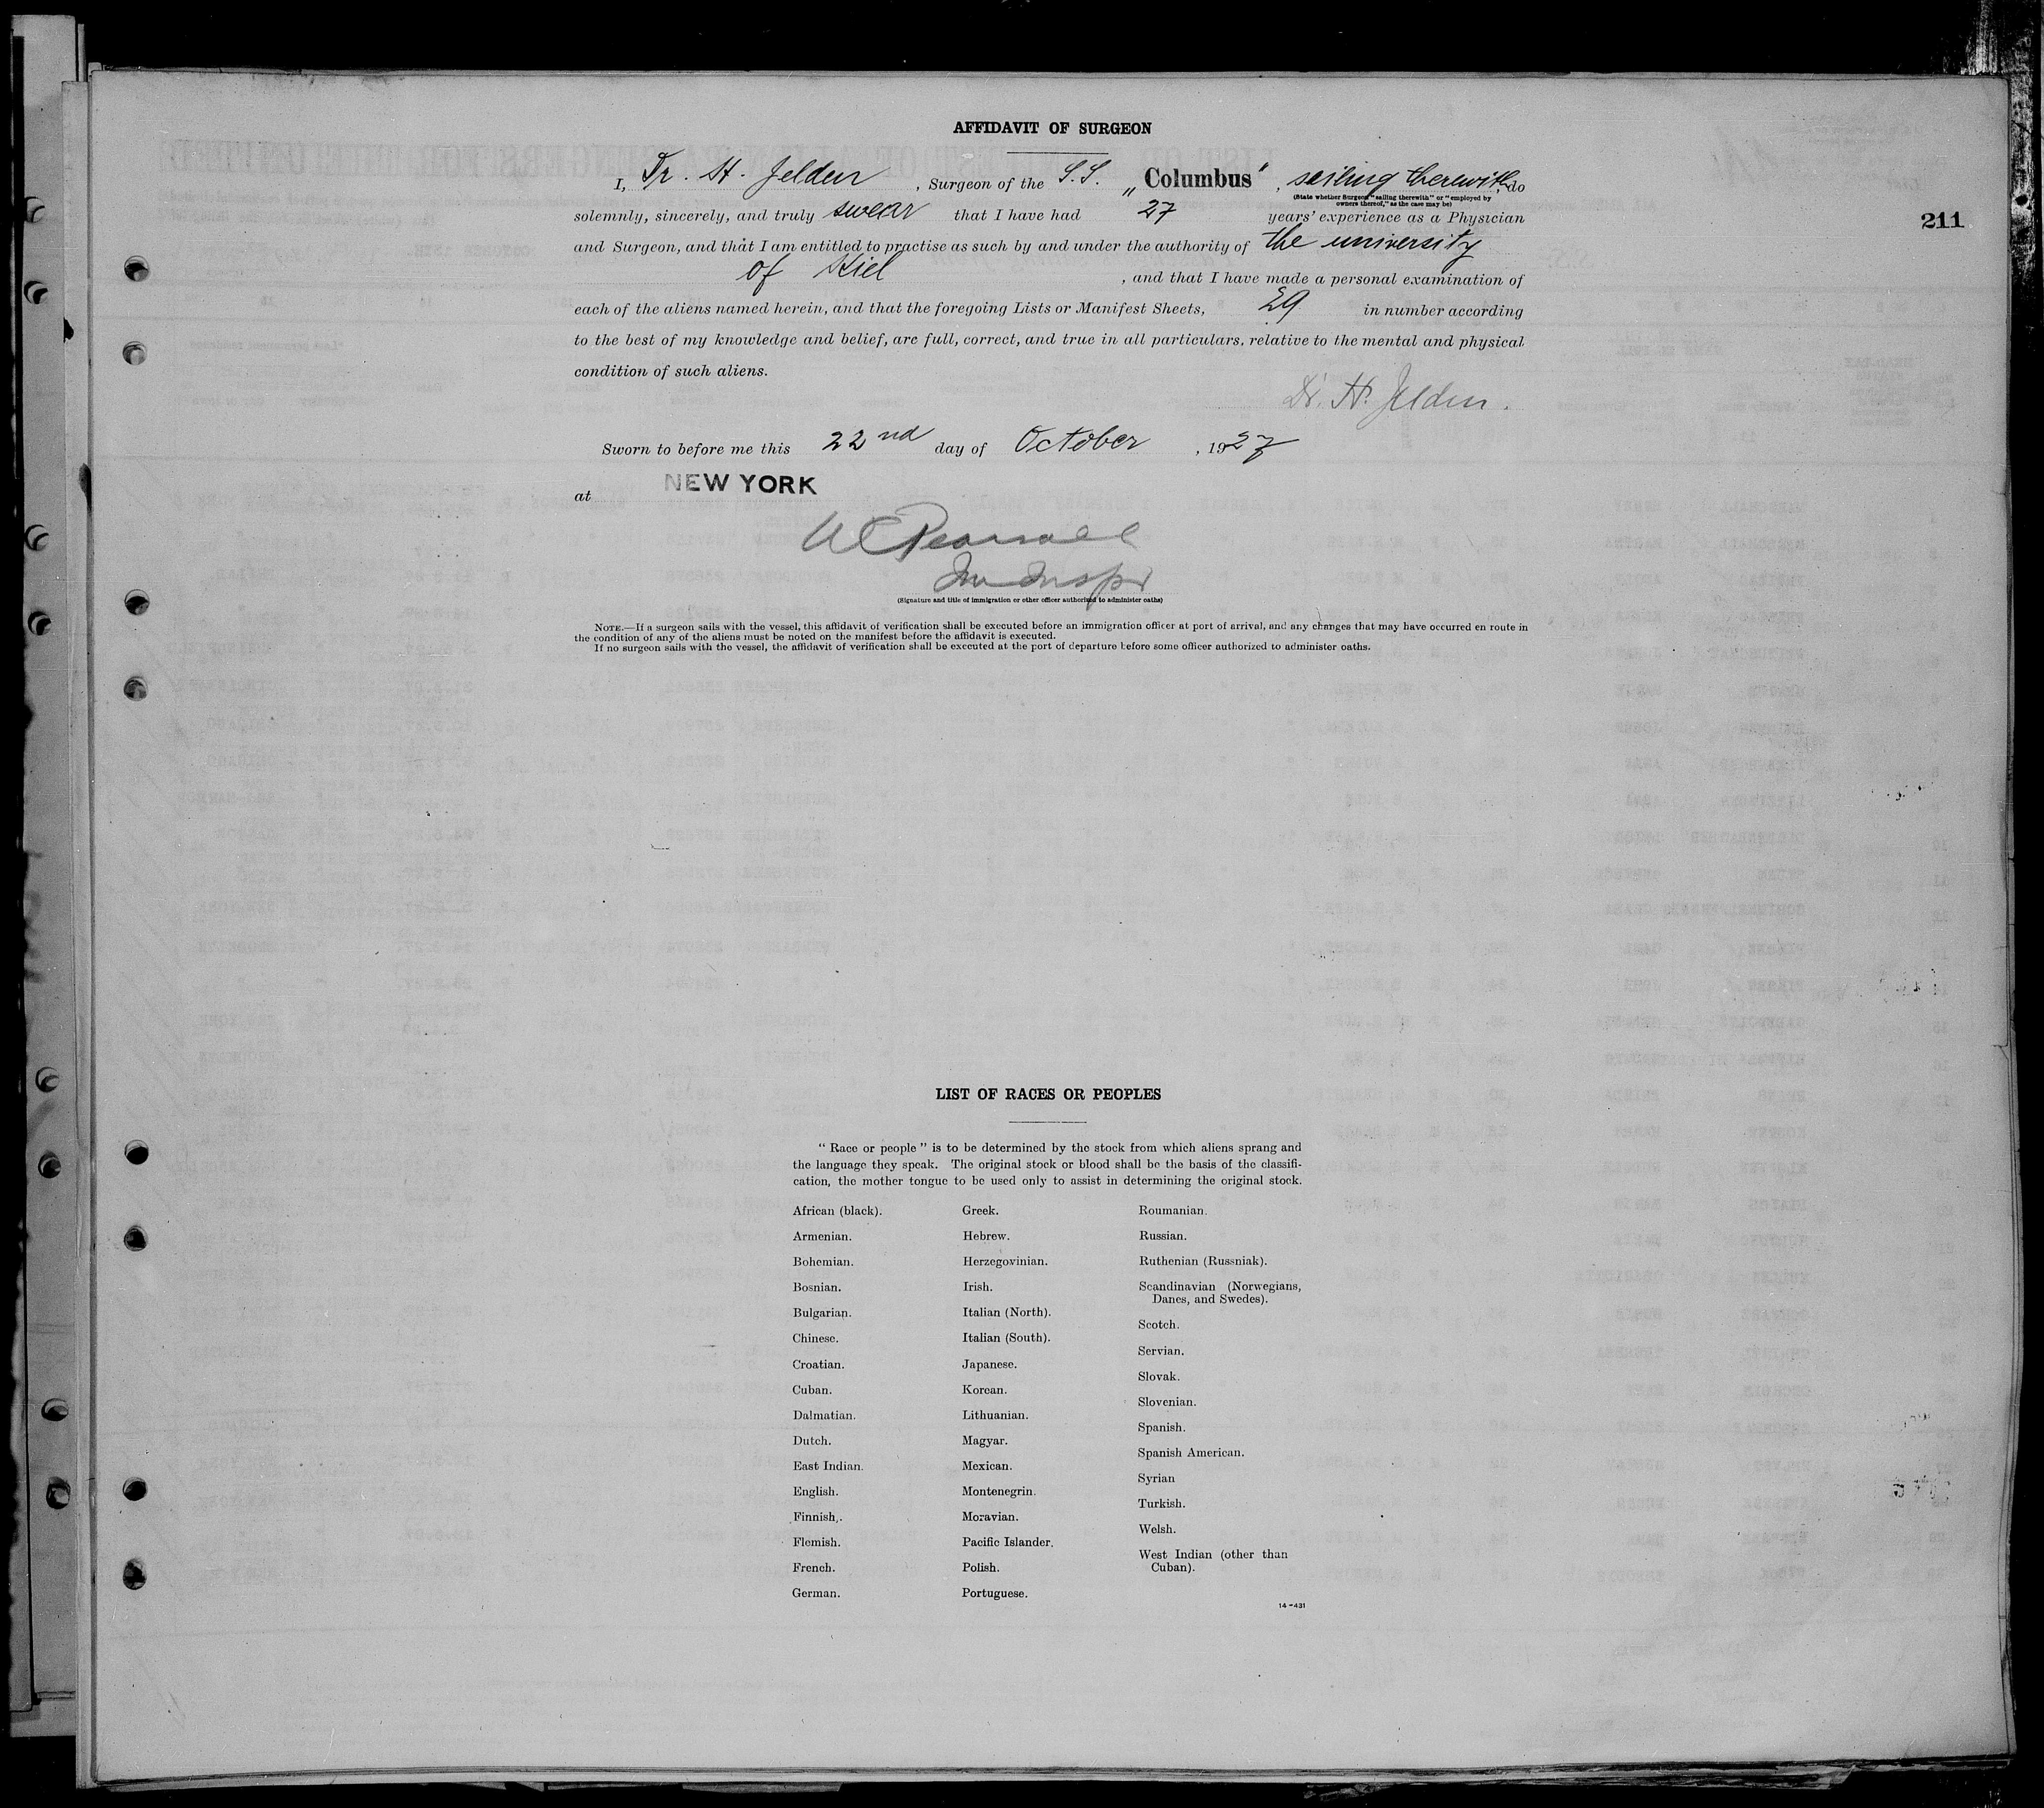 AFFIDAVIT OF SURGEON
I, Dr. H. Jelden , Surgeon of the S.S. „Columbus“ , sailing therewith, do
(State whether Surgeon “sailing therewith” or “employed by
owners thereof,” as the case may be)
solemnly, sincerely, and truly swear that I have had 27 years' experience as a Physician
211
and Surgeon, and that I am entitled to practise as such by and under the authority of the university
of Kiel , and that I have made a personal examination of
each of the aliens named herein, and that the foregoing Lists or Manifest Sheets, 29 in number according
to the best of my knowledge and belief, are full, correct, and true in all particulars, relative to the mental and physical
condition of such aliens.
Dr. H. Jelden.
Sworn to before me this 22nd day of October , 1927
at NEW YORK
(Signature and title of immigration or other officer authorized to administer oaths)
NOTE.—If a surgeon sails with the vessel, this affidavit of verification shall be executed before an immigration officer at port of arrival, and any changes that may have occurred en route in
the condition of any of the aliens must be noted on the manifest before the affidavit is executed.
If no surgeon sails with the vessel, the affidavit of verification shall be executed at the port of departure before some officer authorized to administer oaths.
LIST OF RACES OR PEOPLES
“ Race or people ” is to be determined by the stock from which aliens sprang and
the language they speak. The original stock or blood shall be the basis of the classifi-
cation, the mother tongue to be used only to assist in determining the original stock.
African (black).
Armenian.
Bohemian.
Bosnian.
Bulgarian.
Chinese.
Croatian.
Cuban.
Dalmatian.
Dutch.
East Indian.
English.
Finnish.
Flemish.
French.
German.
Greek.
Hebrew.
Herzegovinian.
Irish.
Italian (North).
Italian (South).
Japanese.
Korean.
Lithuanian.
Magyar.
Mexican.
Montenegrin.
Moravian.
Pacific Islander.
Polish.
Portuguese.
Roumanian.
Russian.
Ruthenian (Russniak).
Scandinavian (Norwegians,
Danes, and Swedes).
Scotch.
Servian.
Slovak.
Slovenian.
Spanish.
Spanish American.
Syrian
Turkish.
Welsh.
West Indian (other than
Cuban).
14-431